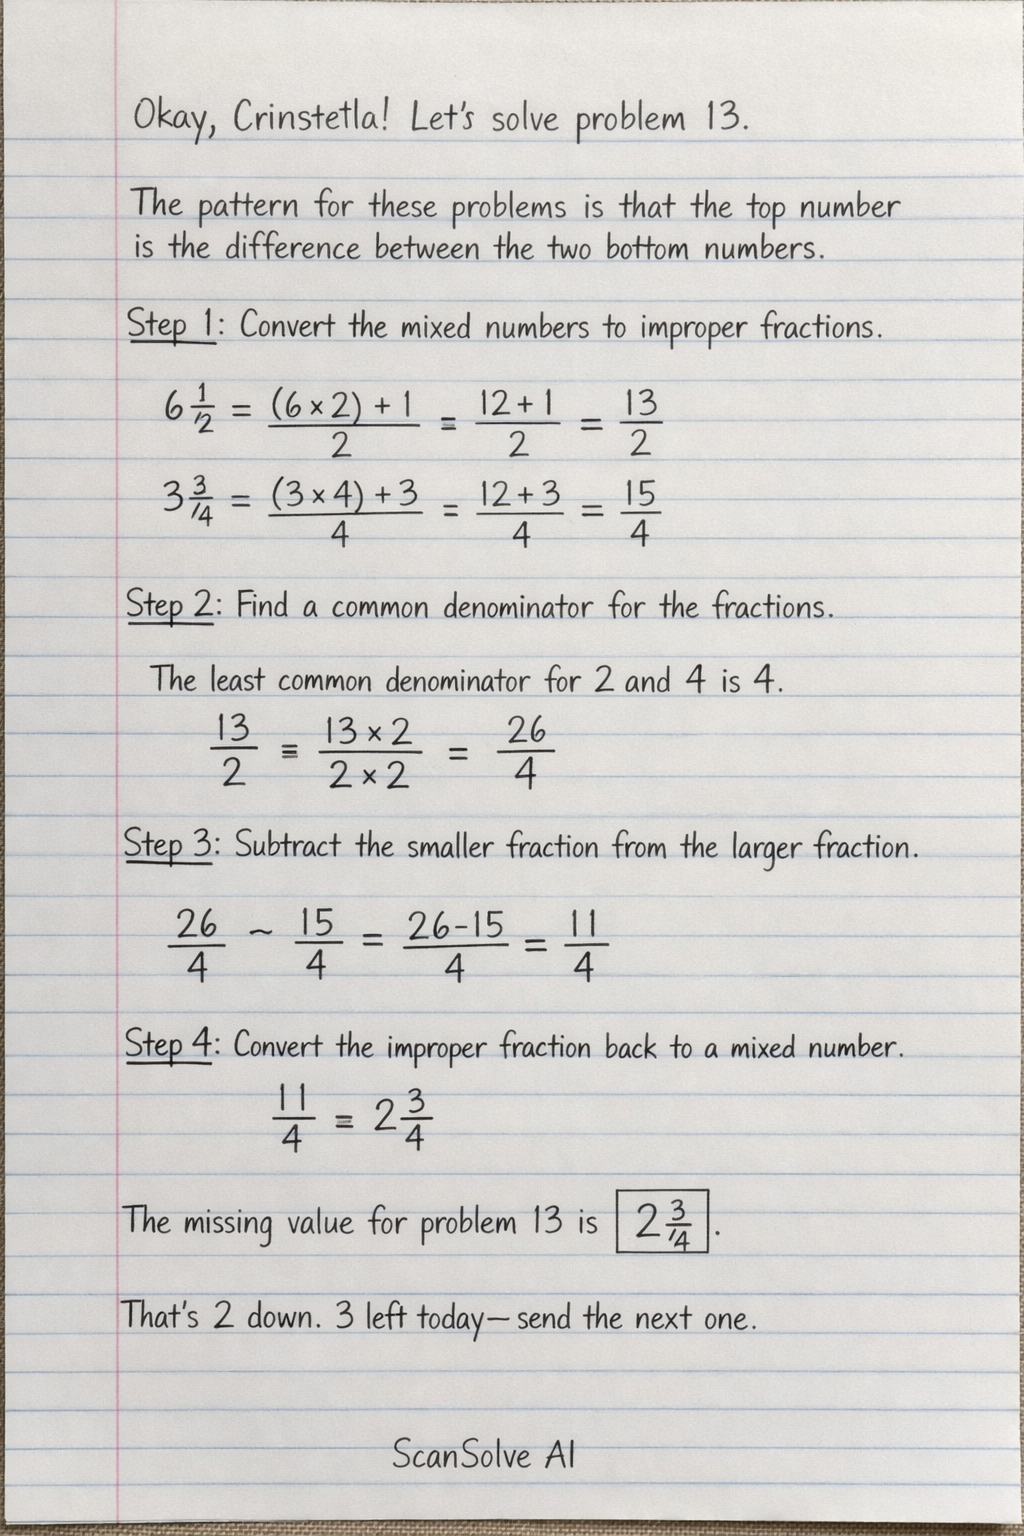 Okay, Crinstetla! Let's solve problem 13.
The pattern for these problems is that the top number
is the difference between the two bottom numbers.
Step 1: Convert the mixed numbers to improper fractions.
6 1/2 = (6 × 2) + 1 / 2 = 12 + 1 / 2 = 13 / 2
3 3/4 = (3 × 4) + 3 / 4 = 12 + 3 / 4 = 15 / 4
Step 2: Find a common denominator for the fractions.
The least common denominator for 2 and 4 is 4.
13 / 2 ≡ 13 × 2 / 2 × 2 = 26 / 4
Step 3: Subtract the smaller fraction from the larger fraction.
26 / 4 ~ 15 / 4 = 26-15 / 4 = 11 / 4
Step 4: Convert the improper fraction back to a mixed number.
11 / 4 = 2 3/4
The missing value for problem 13 is 2 3/4.
That's 2 down. 3 left today—send the next one.
ScanSolve AI